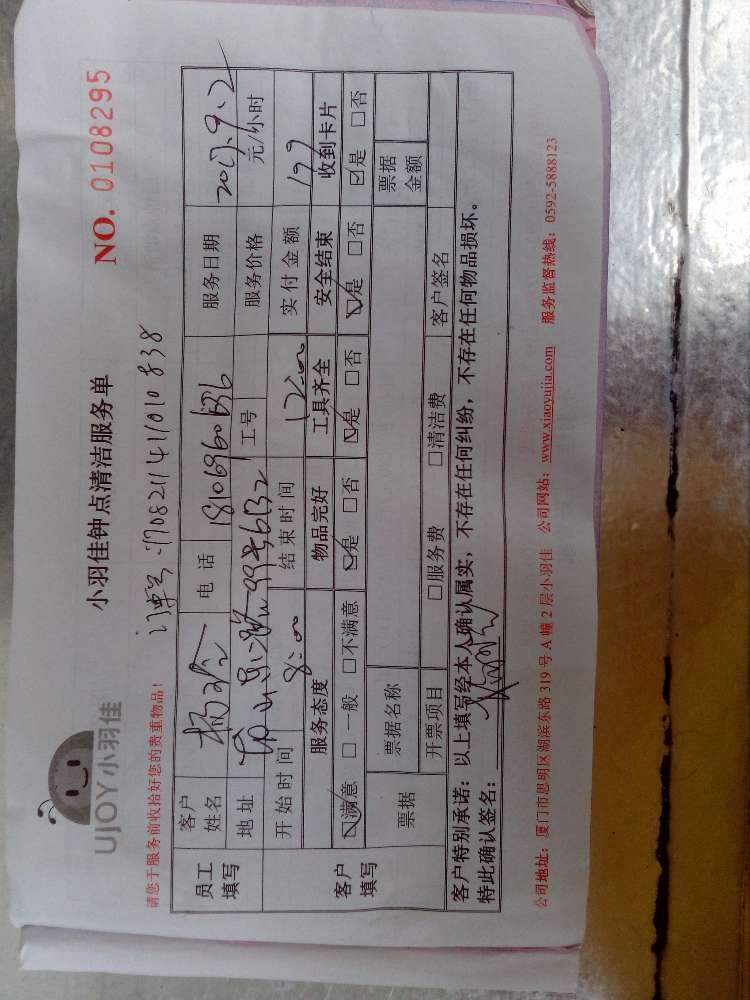 UJOY小羽佳
小羽佳钟点清洁服务单
NO. 0108295
请您于服务前收拾好您的贵重物品!
170821141010838
员工填写 客户姓名 杨 电话 18106960636 服务日期 2017.9.2
地址 99号6132 工号 服务价格 元/小时
开始时间 8:00 结束时间 12:00 实付金额 199
客户填写 服务态度 物品完好 工具齐全 安全结束 收到卡片
☑满意 □一般 □不满意 ☑是 □否 ☑是 □否 ☑是 □否 ☑是 □否
票据 票据名称 票据金额
开票项目 □服务费 □清洁费 客户签名
客户特别承诺:以上填写经本人确认属实,不存在任何纠纷,不存在任何物品损坏。
特此确认签名:
公司地址:厦门市思明区湖滨东路319号A幢2层小羽佳 公司网站:www.xiaoyujia.com 服务监督热线:0592-5888123